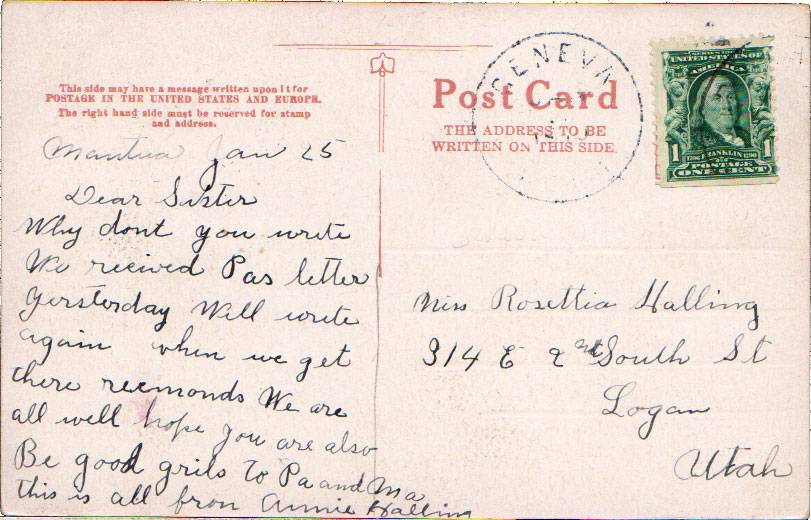 This side may have a message written upon it for
POSTAGE IN THE UNITED STATES AND EUROPE.
The right hand side must be reserved for stamp
and address.
Mantua Jan 25
Dear Sister
Why dont you write
We recived Pas letter
yersterday Will write
again when we get
there reemonds We are
all well hope you are also
Be good grils to Pa and Ma
this is all fron Annie Halling
GENEVA
Post Card
THE ADDRESS TO BE
WRITTEN ON THIS SIDE
UNITED STATES OF
AMERICA
1 FRANKLIN
POSTAGE
ONE CENT
Miss Rosettia Halling
314 E 2nd South St
Logan
Utah